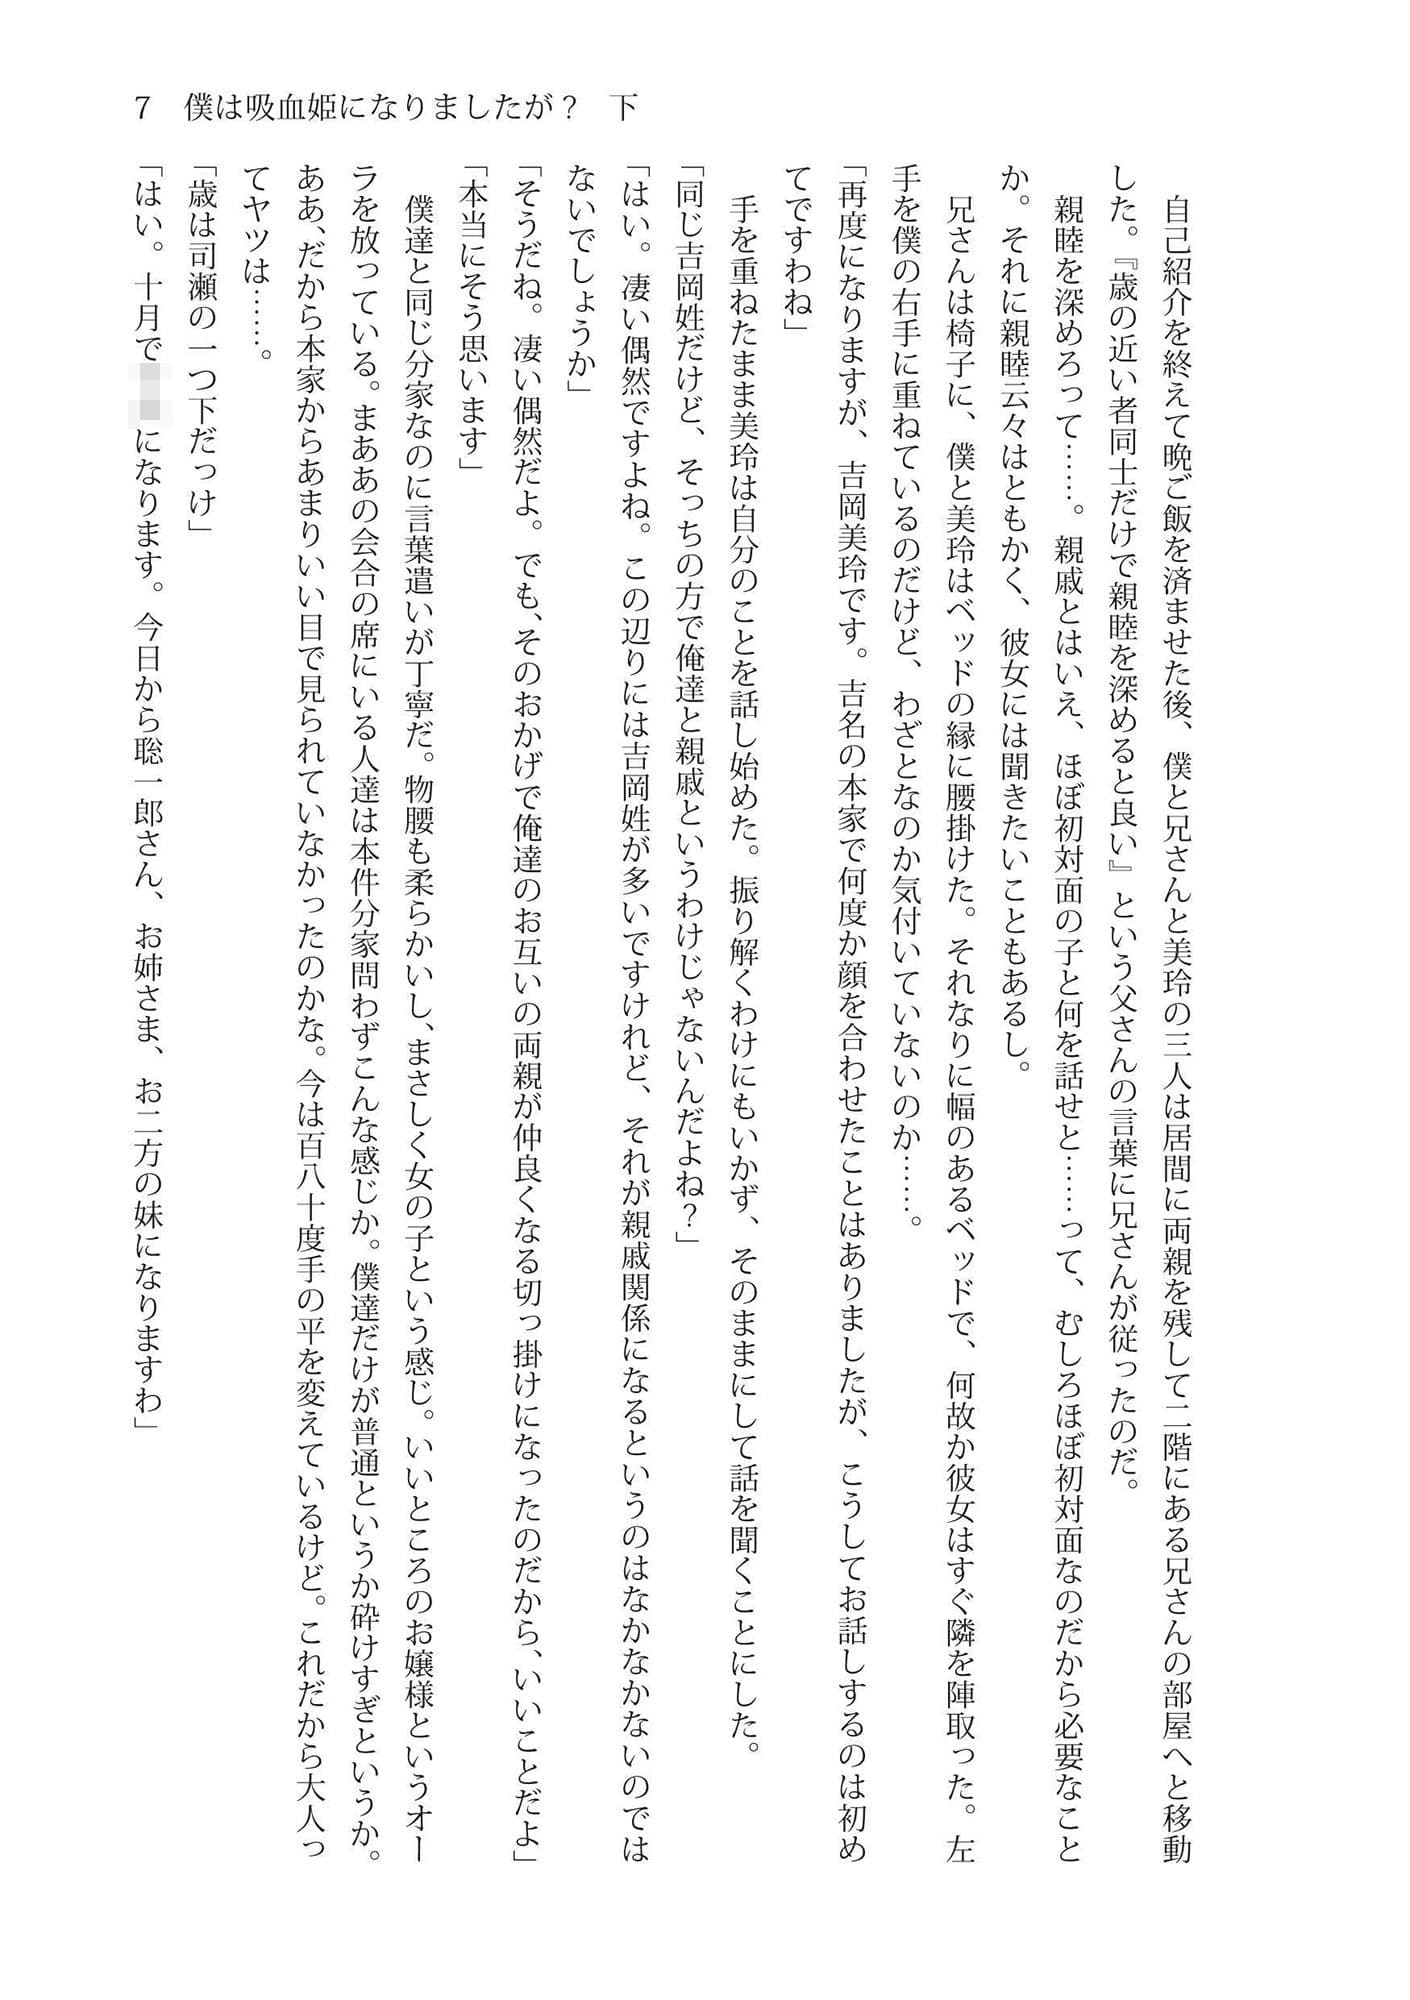 7　僕は吸血姫になりましたが？　下
　自己紹介を終えて晩ご飯を済ませた後、僕と兄さんと美玲の三人は居間に両親を残して二階にある兄さんの部屋へと移動
した。『歳の近い者同士だけで親睦を深めると良い』という父さんの言葉に兄さんが従ったのだ。
　親睦を深めろって……。親戚とはいえ、ほぼ初対面の子と何を話せと……って、むしろほぼ初対面なのだから必要なこと
か。それに親睦云々はともかく、彼女には聞きたいこともあるし。
　兄さんは椅子に、僕と美玲はベッドの縁に腰掛けた。それなりに幅のあるベッドで、何故か彼女はすぐ隣を陣取った。左
手を僕の右手に重ねているのだけど、わざとなのか気付いていないのか……。
「再度になりますが、吉岡美玲です。吉名の本家で何度か顔を合わせたことはありましたが、こうしてお話しするのは初め
てですわね」
　手を重ねたまま美玲は自分のことを話し始めた。振り解くわけにもいかず、そのままにして話を聞くことにした。
「同じ吉岡姓だけど、そっちの方で俺達と親戚というわけじゃないんだよね？」
「はい。凄い偶然ですよね。この辺りには吉岡姓が多いですけれど、それが親戚関係になるというのはなかなかないのでは
ないでしょうか」
「そうだね。凄い偶然だよ。でも、そのおかげで俺達のお互いの両親が仲良くなる切っ掛けになったのだから、いいことだよ」
「本当にそう思います」
　僕達と同じ分家なのに言葉遣いが丁寧だ。物腰も柔らかいし、まさしく女の子という感じ。いいところのお嬢様というオー
ラを放っている。まああの会合の席にいる人達は本件分家問わずこんな感じか。僕達だけが普通というか砕けすぎというか。
ああ、だから本家からあまりいい目で見られていなかったのかな。今は百八十度手の平を変えているけど。これだから大人っ
てヤツは……。
「歳は司瀬の一つ下だっけ」
「はい。十月で になります。今日から聡一郎さん、お姉さま、お二方の妹になりますわ」